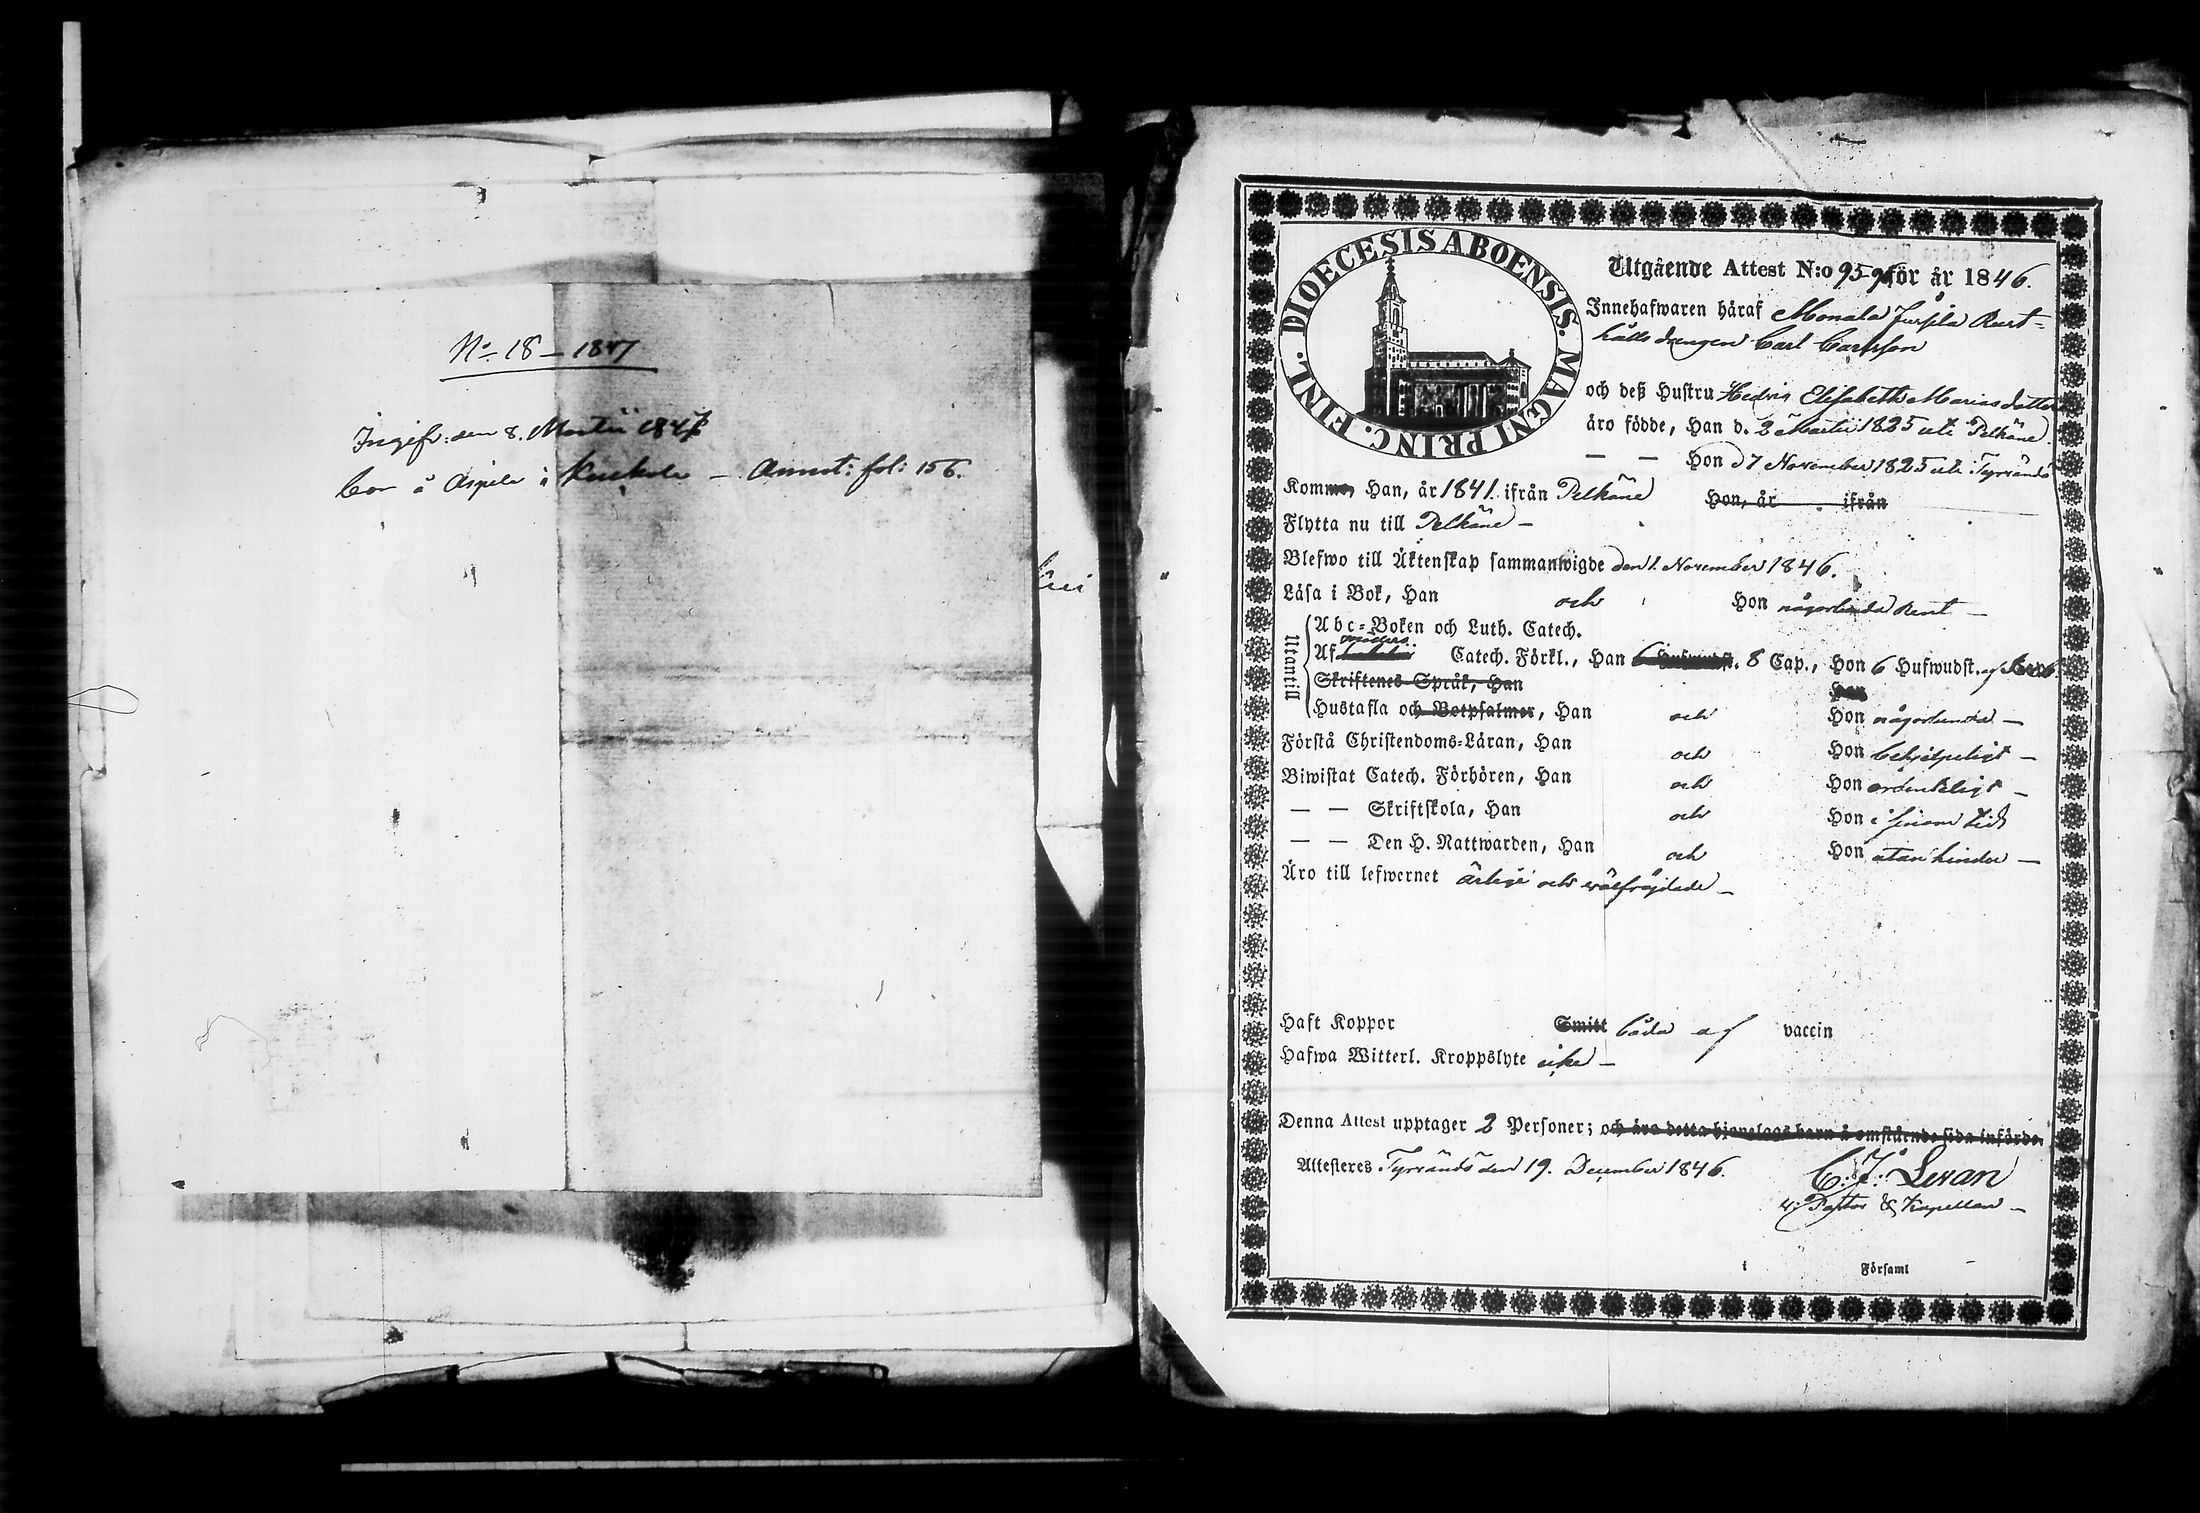 No 18 – 1847
Ingifv: den 8. Martii 1847
bor å Aspila i Kuckola – Annot: fol: 156.
DIOECESIS ABOENSIS. MAGNI PRINC. FINL.
Utgående Attest N:o 95-96 för år 1846.
Innehafwaren häraf Monala Jussila Rust-
hålls drengen Carl Carlsson
och deß Hustru Hedvig Elisabeth Mariasdotter
äro födde, Han d. 2 Martii 1825 uti Pelkäne
— — Hon d 7 November 1825 uti Tyrvändö
Komme, Han, år 1841. ifrån Pelkäne Hon, år . ifrån
Flytta nu till Pelkäne –
Blefwo till Äktenskap sammanwigde den 1. November 1846.
Läsa i Bok, Han och Hon någorlunda rent –
Utantill
Abc-Boken och Luth. Catech.
Af Catech. Förkl., Han 6 Hufwudst. 8 Cap., Hon 6 Hufwudst. af
Skriftenes Språk, Han Hon
Hustafla och Botpsalmer, Han och Hon någorlunda –
Förstå Christendoms-Läran, Han och Hon behjelpeligt –
Biwistat Catech. Förhören, Han och Hon ordentligt –
— — Skriftskola, Han och Hon i sinom tid
— — Den H. Nattwarden, Han och Hon utan hinder –
Äro till lefwernet ärlige och välfrägdade –
Haft Koppor Smitt båda af vaccin
Hafwa Witterl. Kroppslyte icke –
Denna Attest upptager 2 Personer; och äro detta hjonelags barn å omstående sida införde.
Attesteres Tyrvändö den 19. December 1846.
C. J. Levan
v. Pastor & Kapellan –
i Församl